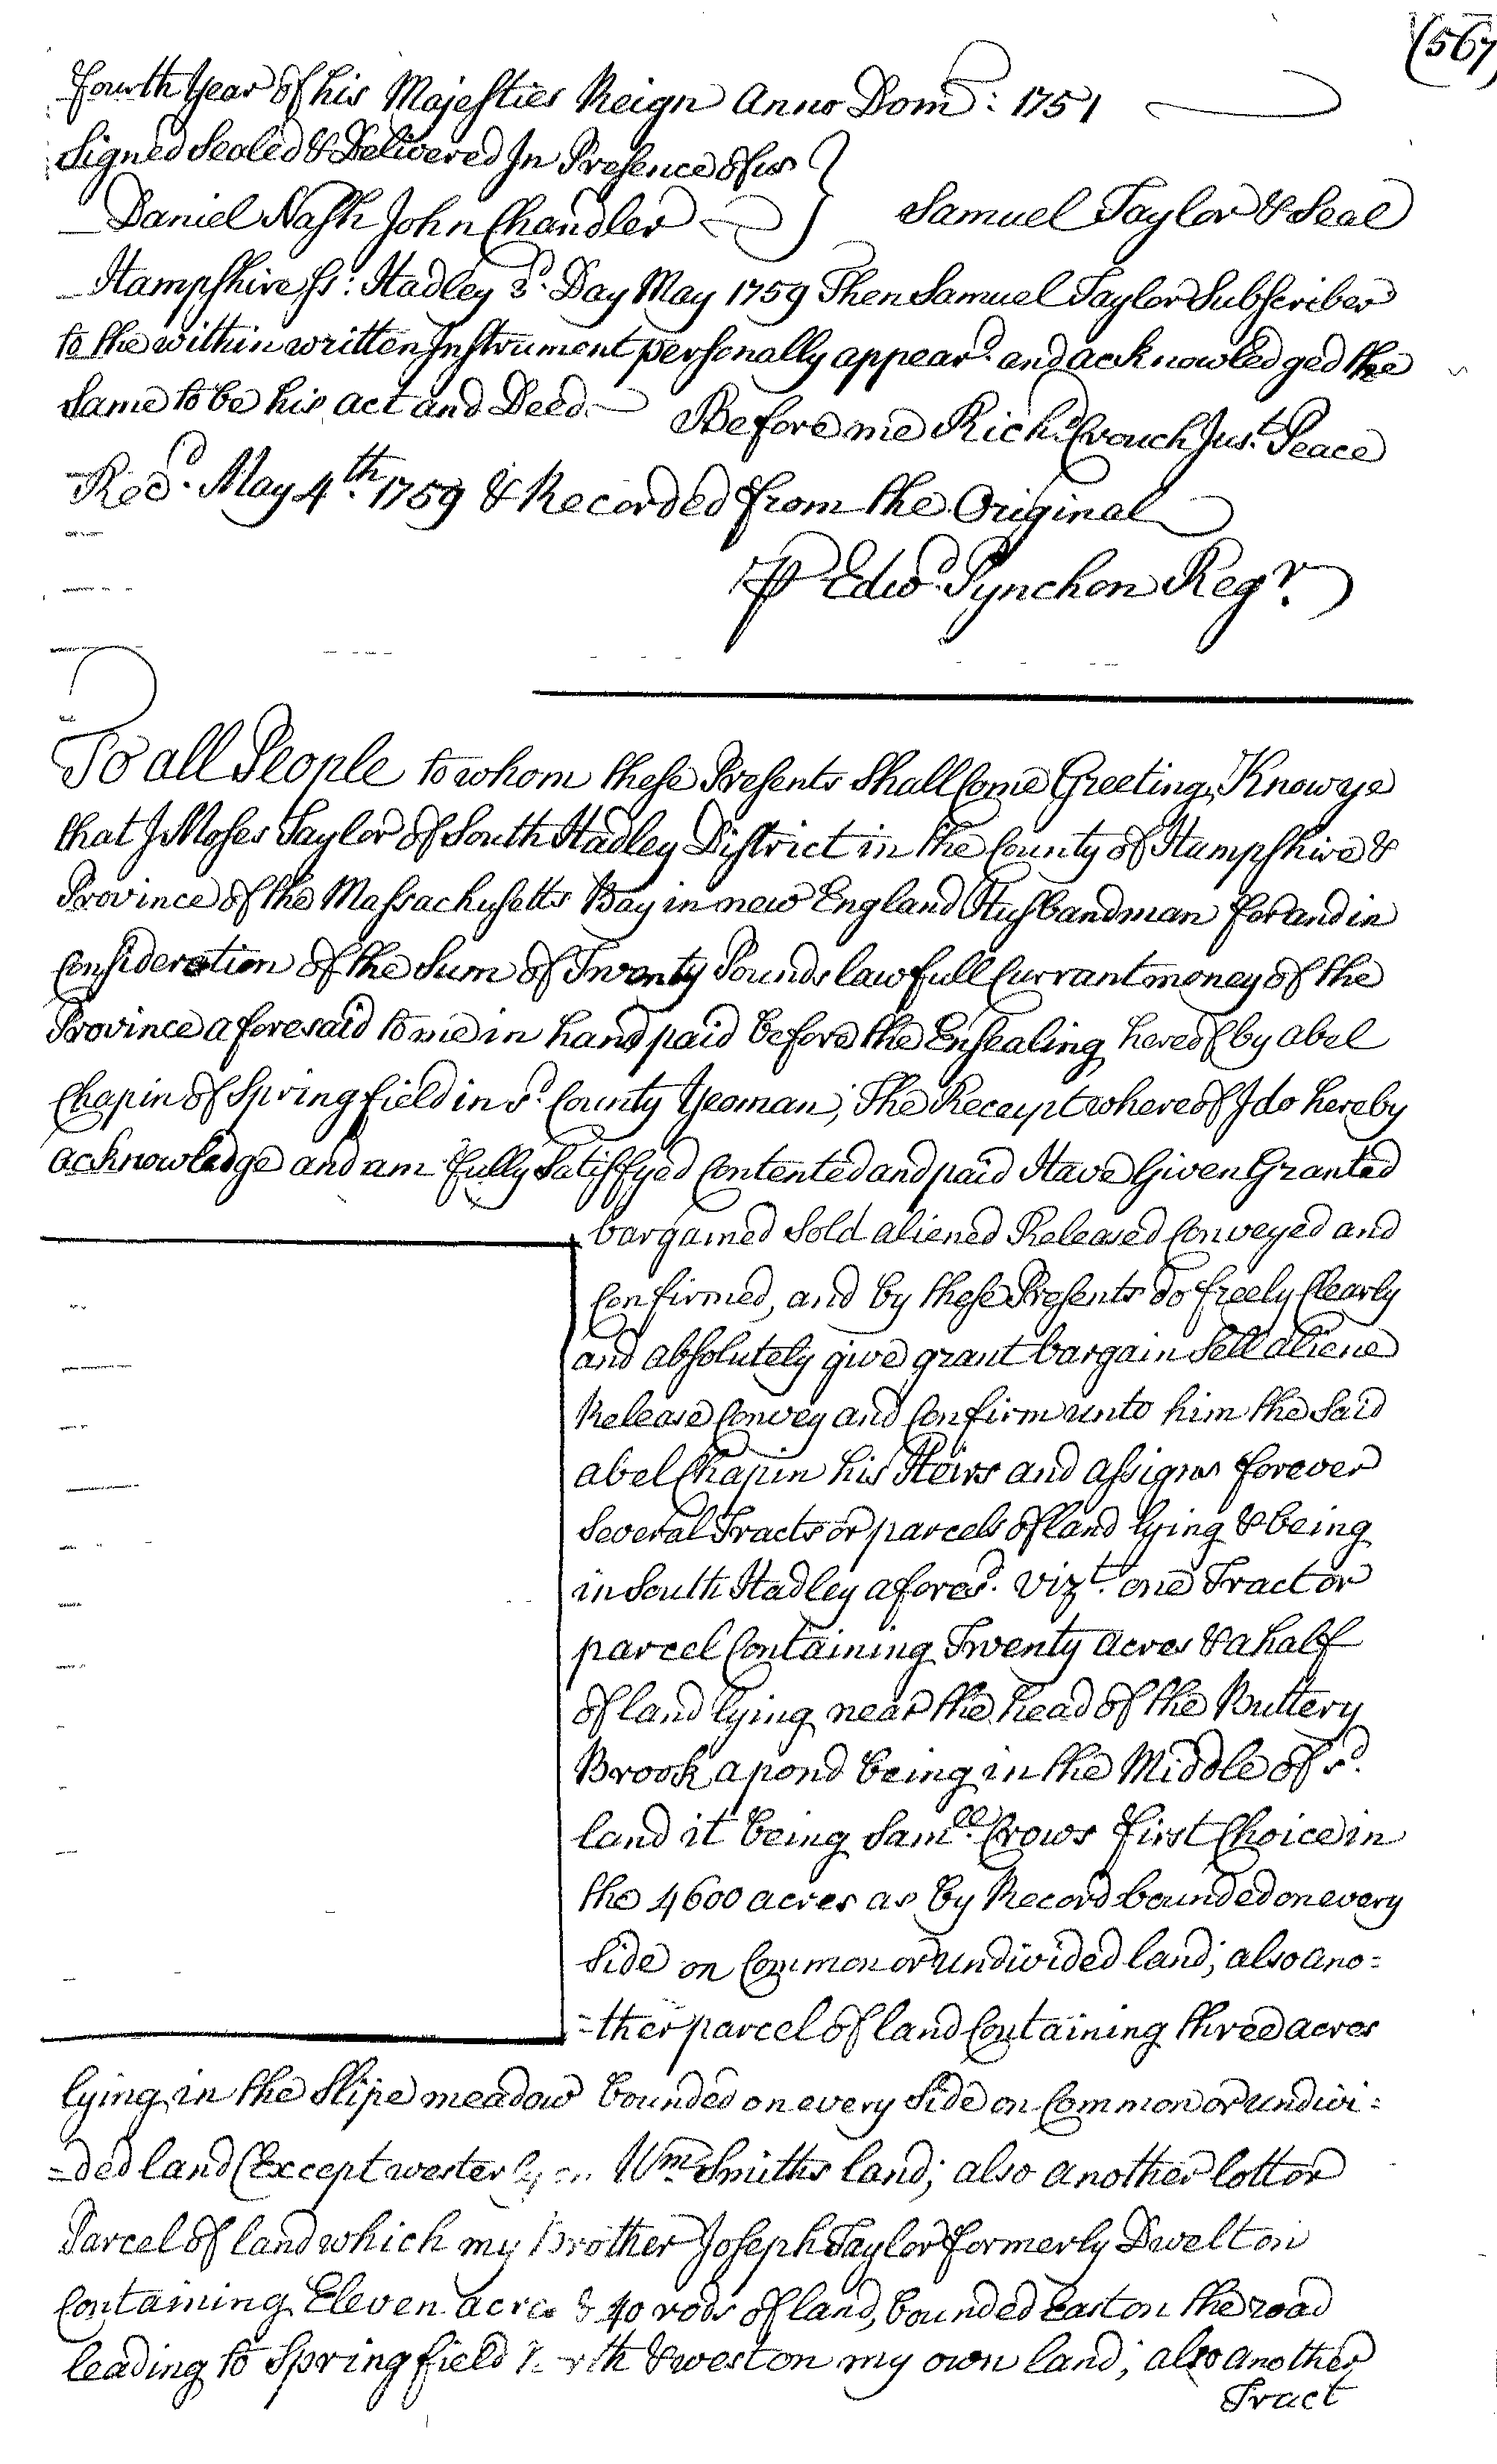 (567)
fourth Year of his Majesties Reign Anno Dom: 1751
Signed Sealed & Delivered In Presence of us
Daniel Nash John Chandler } Samuel Taylor & Seal
Hampshire ss: Hadley 3d. Day May 1759 Then Samuel Taylor Subscriber
to the within written Instrument personally appeard. and acknowledged the
Same to be his act and Deed. Before me Richd. Crouch Just. Peace
Recd. May 4th. 1759 & Recorded from the Original
P Edwd. Pynchon Regr.
To all People to whom these Presents Shall Come Greeting, Know ye
that I Moses Taylor of South Hadley District in the County of Hampshire &
Province of the Massachusetts Bay in new England Husbandman for and in
Consideration of the Sum of Twenty Pounds lawfull Currant money of the
Province aforesaid to me in hand paid before the Ensealing hereof by abel
Chapin of Springfield in sd. County Yeoman; The Receipt whereof I do hereby
acknowledge and am fully Satisfyed Contented and paid Have Given Granted
bargained Sold aliened Released Conveyed and
Confirmed, and by these Presents do freely Clearly
and absolutely give grant bargain Sell aliene
Release Convey and Confirm unto him the Said
abel Chapin his Heirs and assigns forever
Several Tracts or parcels of land lying & being
in South Hadley aforesd. vizt. one Tract or
parcel Containing Twenty acres & a half
of land lying near the head of the Buttery
Brook a pond being in the Middle of sd.
land it being Samll. Crows first Choice in
the 4600 acres as by Record bounded on every
Side on Common or undivided land; also ano=
=ther parcel of land Containing three acres
lying in the Slipe meadow bounded on every Side on Common or undivi=
=ded land (Except westerly on Wm. Smiths land; also another lott or
Parcel of land which my Brother Joseph Taylor formerly Dwelt on
Containing Eleven acres & 40 rods of land, bounded East on the road
leading to Springfield North & west on my own land; also another
Tract